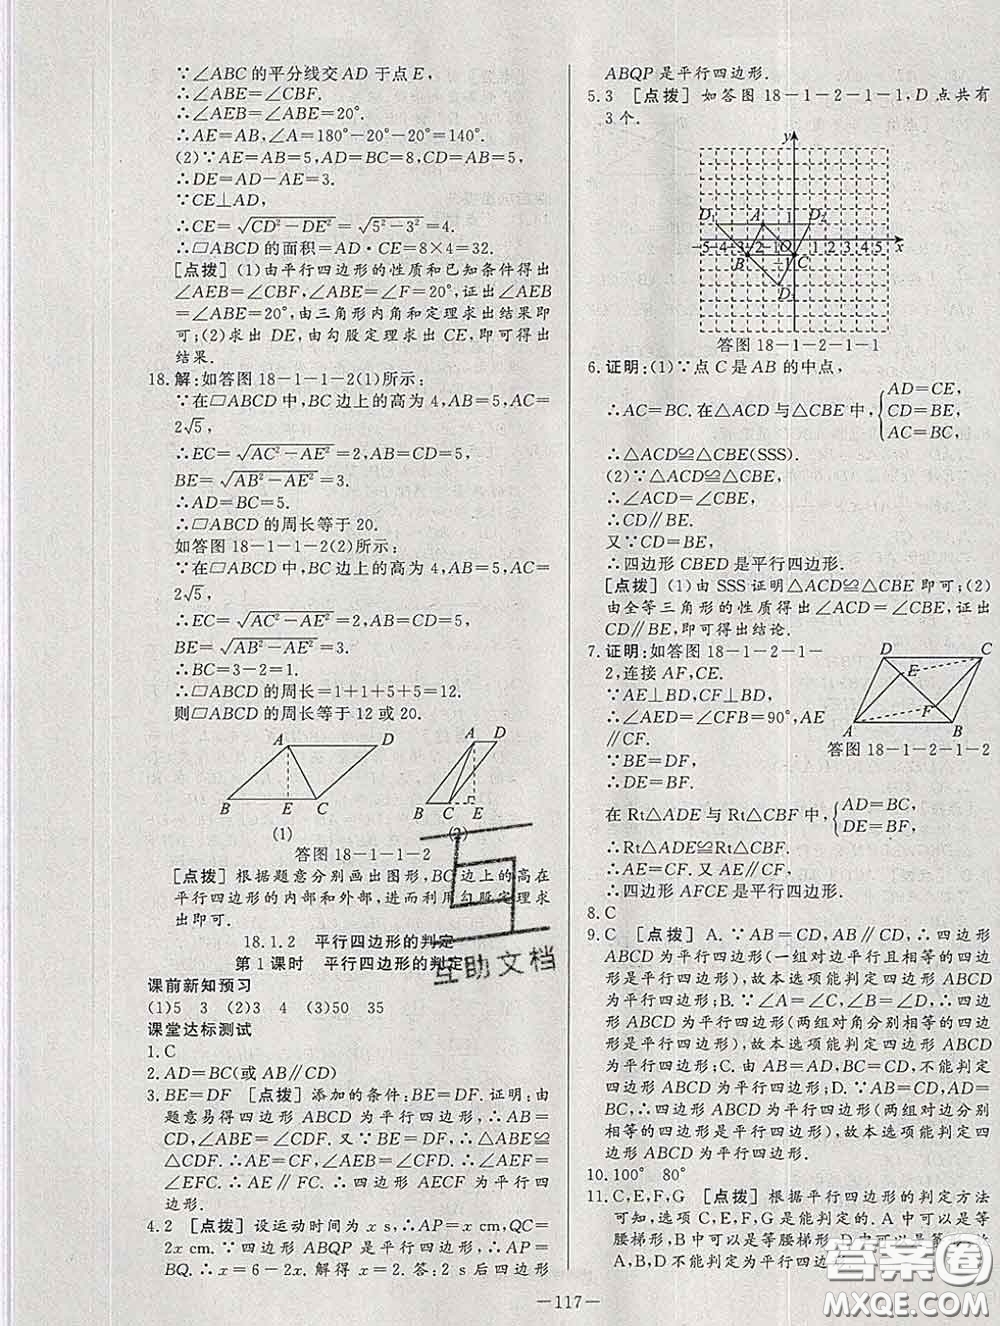 ∵∠ABC的平分线交AD于点E,
∴∠ABE=∠CBF.
∴∠AEB=∠ABE=20°.
∴AE=AB,∠A=180°-20°-20°=140°.
(2)∵AE=AB=5,AD=BC=8,CD=AB=5,
∴DE=AD-AE=3.
∵CE⊥AD,
∴CE=√(CD²-DE²)=√(5²-3²)=4.
∴▱ABCD的面积=AD·CE=8×4=32.
[点拨] (1)由平行四边形的性质和已知条件得出
∠AEB=∠CBF,∠ABE=∠F=20°,证出∠AEB
=∠ABE=20°,由三角形内角和定理求出结果即
可;(2)求出DE,由勾股定理求出CE,即可得出
结果.
18.解:如答图18-1-1-2(1)所示:
∵在▱ABCD中,BC边上的高为4,AB=5,AC=
2√5,
∴EC=√(AC²-AE²)=2,AB=CD=5,
BE=√(AB²-AE²)=3.
∴AD=BC=5.
∴▱ABCD的周长等于20.
如答图18-1-1-2(2)所示:
∵在▱ABCD中,BC边上的高为4,AB=5,AC=
2√5,
∴EC=√(AC²-AE²)=2,AB=CD=5,
BE=√(AB²-AE²)=3.
∴BC=3-2=1.
∴▱ABCD的周长=1+1+5+5=12.
则▱ABCD的周长等于12或20.
A D A D
B E C B C E
(1) (2)
答图18-1-1-2
[点拨] 根据题意分别画出图形,BC边上的高在
平行四边形的内部和外部,进而利用勾股定理求
出即可.
18.1.2 平行四边形的判定
第1课时 平行四边形的判定
课前新知预习
(1)5 3 (2)3 4 (3)50 35
课堂达标测试
1.C
2.AD=BC(或AB∥CD)
3.BE=DF [点拨] 添加的条件:BE=DF.证明:由
题意易得四边形ABCD为平行四边形,∴AB=
CD,∠ABE=∠CDF.又∵BE=DF,∴△ABE≌
△CDF.∴AE=CF,∠AEB=∠CFD.∴∠AEF=
∠CFE.∴AE∥FC.∴四边形AECF为平行四
边形.
4.2 [点拨] 设运动时间为x s,∴AP=x cm,QC=
2x cm.∵四边形ABQP是平行四边形,∴AP=
BQ.∴x=6-2x.解得x=2.答:2 s后四边形
ABQP是平行四边形.
5.3 [点拨] 如答图18-1-2-1-1,D点共有
3个.
y
D₁ A 1 D₂
-5-4-3-2-1O 1 2 3 4 5 x
B -1 C
D₃
答图18-1-2-1-1
6.证明:(1)∵点C是AB的中点,
∴AC=BC.在△ACD与△CBE中,{AD=CE, CD=BE, AC=BC,
∴△ACD≌△CBE(SSS).
(2)∵△ACD≌△CBE,
∴∠ACD=∠CBE.
∴CD∥BE.
又∵CD=BE,
∴四边形CBED是平行四边形.
[点拨] (1)由SSS证明△ACD≌△CBE即可;(2)
由全等三角形的性质得出∠ACD=∠CBE,证出
CD∥BE,即可得出结论.
7.证明:如答图18-1-2-1-
2,连接AF,CE.
∵AE⊥BD,CF⊥BD,
∴∠AED=∠CFB=90°,AE
∥CF.
∵BE=DF,
∴DE=BF.
D C
E
F
A B
答图18-1-2-1-2
在Rt△ADE与Rt△CBF中,{AD=BC, DE=BF,
∴Rt△ADE≌Rt△CBF.
∴AE=CF.又AE∥CF,
∴四边形AFCE是平行四边形.
8.C
9.C [点拨] A.∵AB=CD,AB∥CD,∴四边形
ABCD是平行四边形(一组对边平行且相等的四
边形是平行四边形),故本选项能判定四边形ABCD
是平行四边形;B.∵∠A=∠C,∠B=∠D,∴四边
形ABCD是平行四边形(两组对角分别相等的四边
形是平行四边形),故本选项能判定四边形ABCD
为平行四边形;C.由AB=AD,BC=CD,不能判定
四边形ABCD是平行四边形;D.∵AB=CD,AD=
BC,∴四边形ABCD是平行四边形(两组对边分别
相等的四边形是平行四边形),故本选项能判定四
边形ABCD是平行四边形.
10.100° 80°
11.C,E,F,G [点拨] 根据平行四边形的判定方法
可知,选项C,E,F,G是能判定的.A中可以是等
腰梯形,B中可以是等腰梯形,D中可以是
A,B,D不能判定为平行四边
—117—
互助文档
答案圈
MXQE.COM